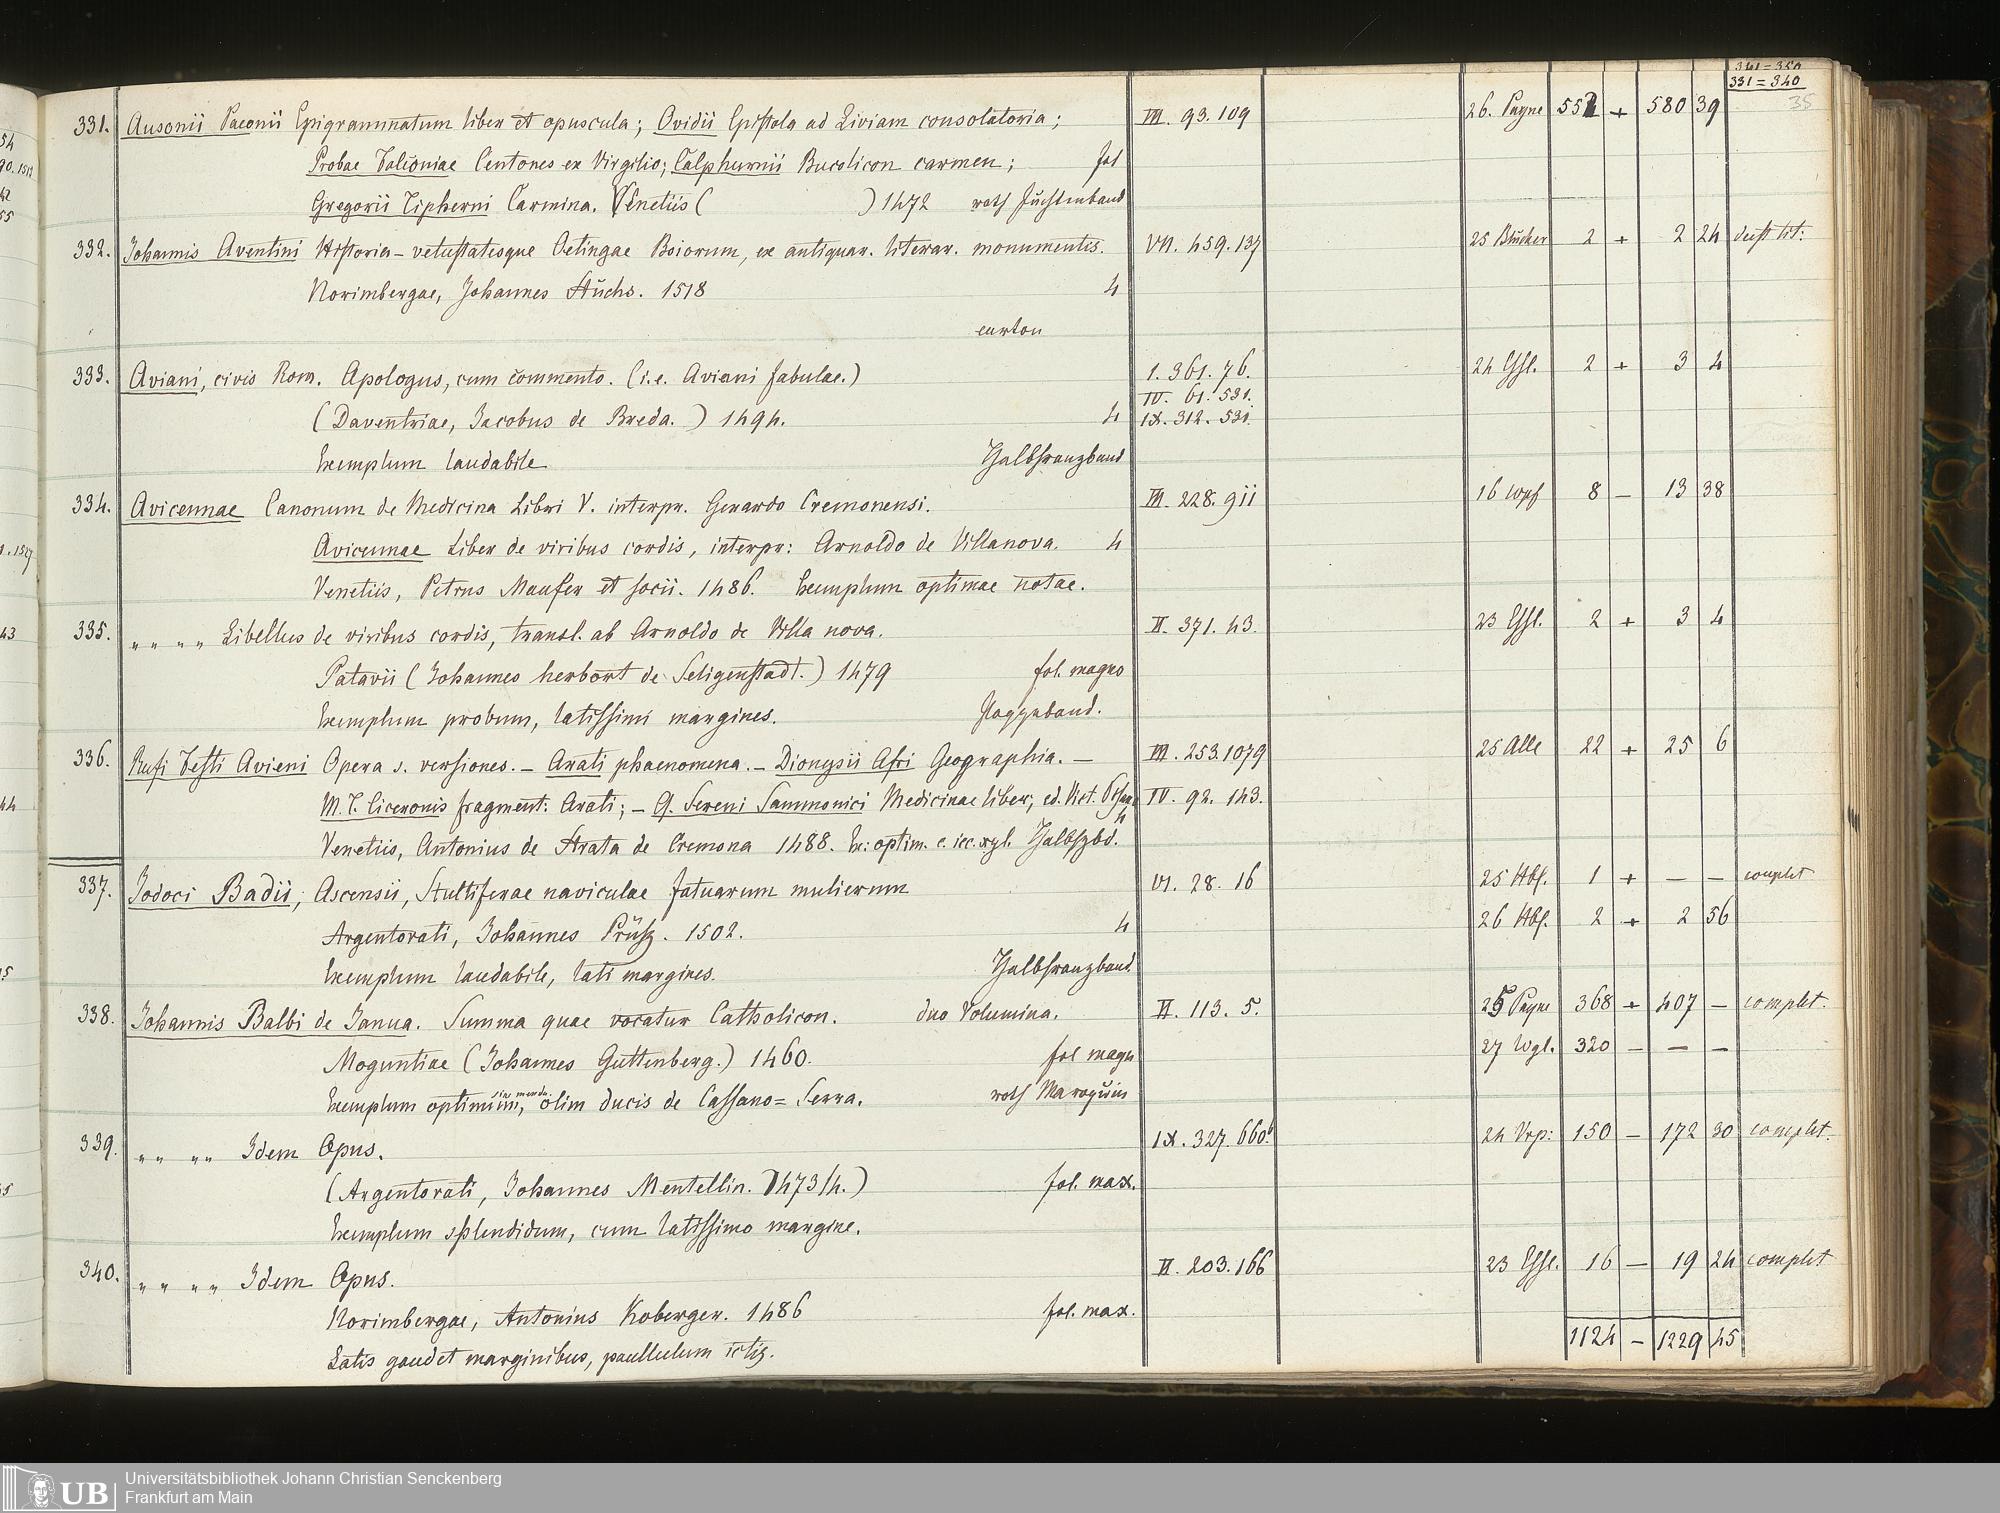 341 = 350
331 = 340
35
331. Ausonii Paeonii Epigrammatum liber et opuscula; Ovidii Epistola ad Liviam consolatoria; III. 93. 109 26. Payne 552 + 580 39
Probae Falconiae Centones ex Virgilio; Calphurnii Bucolicon carmen; fol
Gregorii Tipherni Carmina. Venetiis ( ) 1472 roth Juchtenband
332. Johannis Aventini Historia - vetustatesque Oetingae Boiorum, ex antiquar. literar. monumentis. VII. 459. 137 25 Bücker 2 + 2 24 deest tit:
Norimbergae, Johannes Stüchs. 1518 4
carton
333. Aviani, civis Rom. Apologus, cum commento. (i.e. Aviani fabulae.) I. 361. 76. 24 Eßl. 2 + 3 4
IV. 61. 531.
(Daventriae, Jacobus de Breda.) 1494. 4 IX. 312. 531.
Exemplum laudabile Halbfranzband
334. Avicennae Canonum de Medicina Libri V. interpr. Gerardo Cremonensi. III. 228. 911 16 Wpf 8 – 13 38
Avicennae Liber de viribus cordis, interpr: Arnoldo de Villanova. 4
Venetiis, Petrus Maufer et socii. 1486. Exemplum optimae notae.
335. " " " " Libellus de viribus cordis, transl. ab Arnoldo de Villa nova. II. 371. 43. 23 Eßl. 2 + 3 4
Patavii (Johannes herbort de Seligenstadt.) 1479 fol. magno
Exemplum probum, latissimi margines. Pappband.
336. Rufi Festi Avieni Opera s. versiones. – Arati phaenomena. – Dionysii Afri Geographia. – III. 253. 1079 25 Alle 22 + 25 6
M. T. Ciceronis fragment: Arati; – Q. Sereni Sammonici Medicinae liber; ed. Vict. IV. 92. 143.
Venetiis, Antonius de Strata de Cremona 1488. Ex: optim. c. icc. xyl. Halbfzbd. 4
337. Jodoci Badii, Ascensii, Stultiferae naviculae fatuarum mulierum VI. 28. 16 25 Hbf. 1 + – – complet
Argentorati, Johannes Prüß. 1502. 4 26 Hbf. 2 + 2 56
Exemplum laudabile, lati margines. Halbfranzband
338. Johannis Balbi de Janua. Summa quae vocatur Catholicon. duo Volumina. II. 113. 5. 25 Payne 368 + 407 – complet.
Moguntiae (Johannes Guttenberg.) 1460. fol magn 27 Wgl. 320 – – –
Exemplum optimum, olim ducis de Cassano = Serra. roth Maroquin
339. " " " " Idem Opus. IX. 327. 660b 24 Vrp: 150 – 172 30 complet.
(Argentorati, Johannes Mentellin. 1473/4.) fol. max.
Exemplum splendidum, cum latissimo margine.
340. " " " " Idem Opus. II. 203. 166 23 Eßl. 16 – 19 24 complet
Norimbergae, Antonius Koberger. 1486 fol. max.
Latis gaudet marginibus, paullulum
1124 – 1229 45
UB
Universitätsbibliothek Johann Christian Senckenberg
Frankfurt am Main